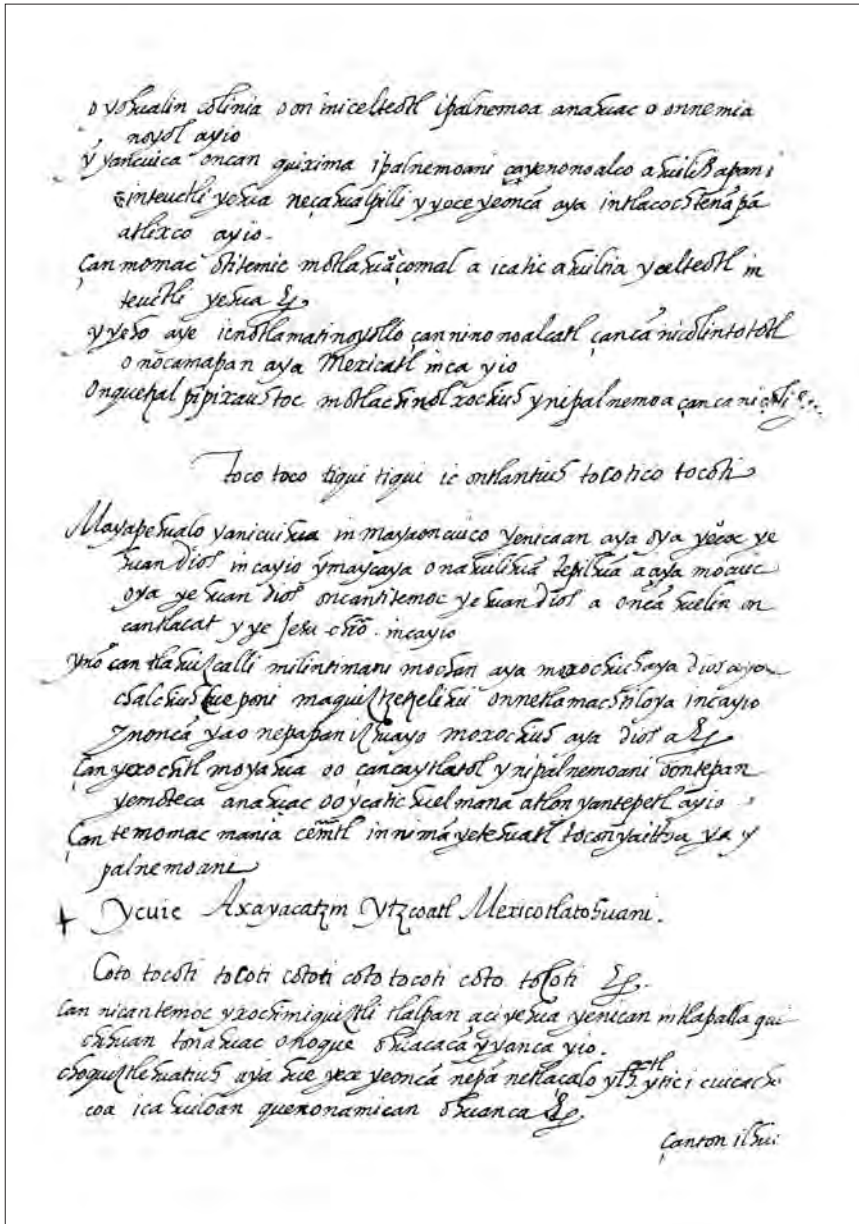 o yohualin colinia o on in icelteotl ipalnemoa anahuac o onnemia
noyol ayio
y yancuica oncan quixima ipalnemoani ca yenonoalco ahuilizapan i
in teuctli yehua neçahualpilli y yoce yeoncã aya in tlacochtenãpã
atlixco ayio.
çan momac otitemic motlahuaçomal a icatic ahuiltia ycelteotl in
teuctli yehua &.
y yeho aye icnotlamati noyollo çan nino noalcatl çan cã nicolintototl
o nocamapan aya Mexicatl inca yio
Onquetzal pipixauhtoc motlachinolxochiuh ynipalnemoa çan ca ni
toco toco tiqui tiqui ic ontlantiuh tocotico tocoti
Mayapehualo yanicuihua in mayaoncuico yenicaan aya oya yecoc ye
huan Dios in cayio ymaycaya onahuilihuã tepilhuã a aya mocuic
oya ye huan dios oncantitemoc ye huan dios a oncã huelin on
can tlacat y ye Jesu chõ. incayio
yno can tlahuizcalli milintimani mochan aya moxochiuh aya Dios
chalchiuhcueponi maquiztzetzelihui onnetlamachtiloya in cayio
ynoncã yao nepapan izhuayo moxochiuh aya dios a &
Çan yexochitl moyahua oo çan caytlatol ynipalnemoani o ontepan
yemoteca anahuac oo ycatic huelmana atlon yantepetl ayio
Çan temomac mania cẽmtl in nimã yetehuatl toconyaittoa ya y
palnemoani
Ycuic Axayacatzin Ytzcoatl Mexico tlatohuani.
Coto tocoti tocoti cototi coto tocoti coto tocoti &.
Can nicantemoc y xochimiquiztli tlalpan aci yehua yenican in tlapalla qui
chihuan tonahuac onoque ohuacacã yyanca yio.
choquiztlehuatiuh aya hue yece yeoncã nepã netlacalo ylh ytic i cuicachi
coa ica huiloan quenonamican ohuanca &.
çanton ilhui